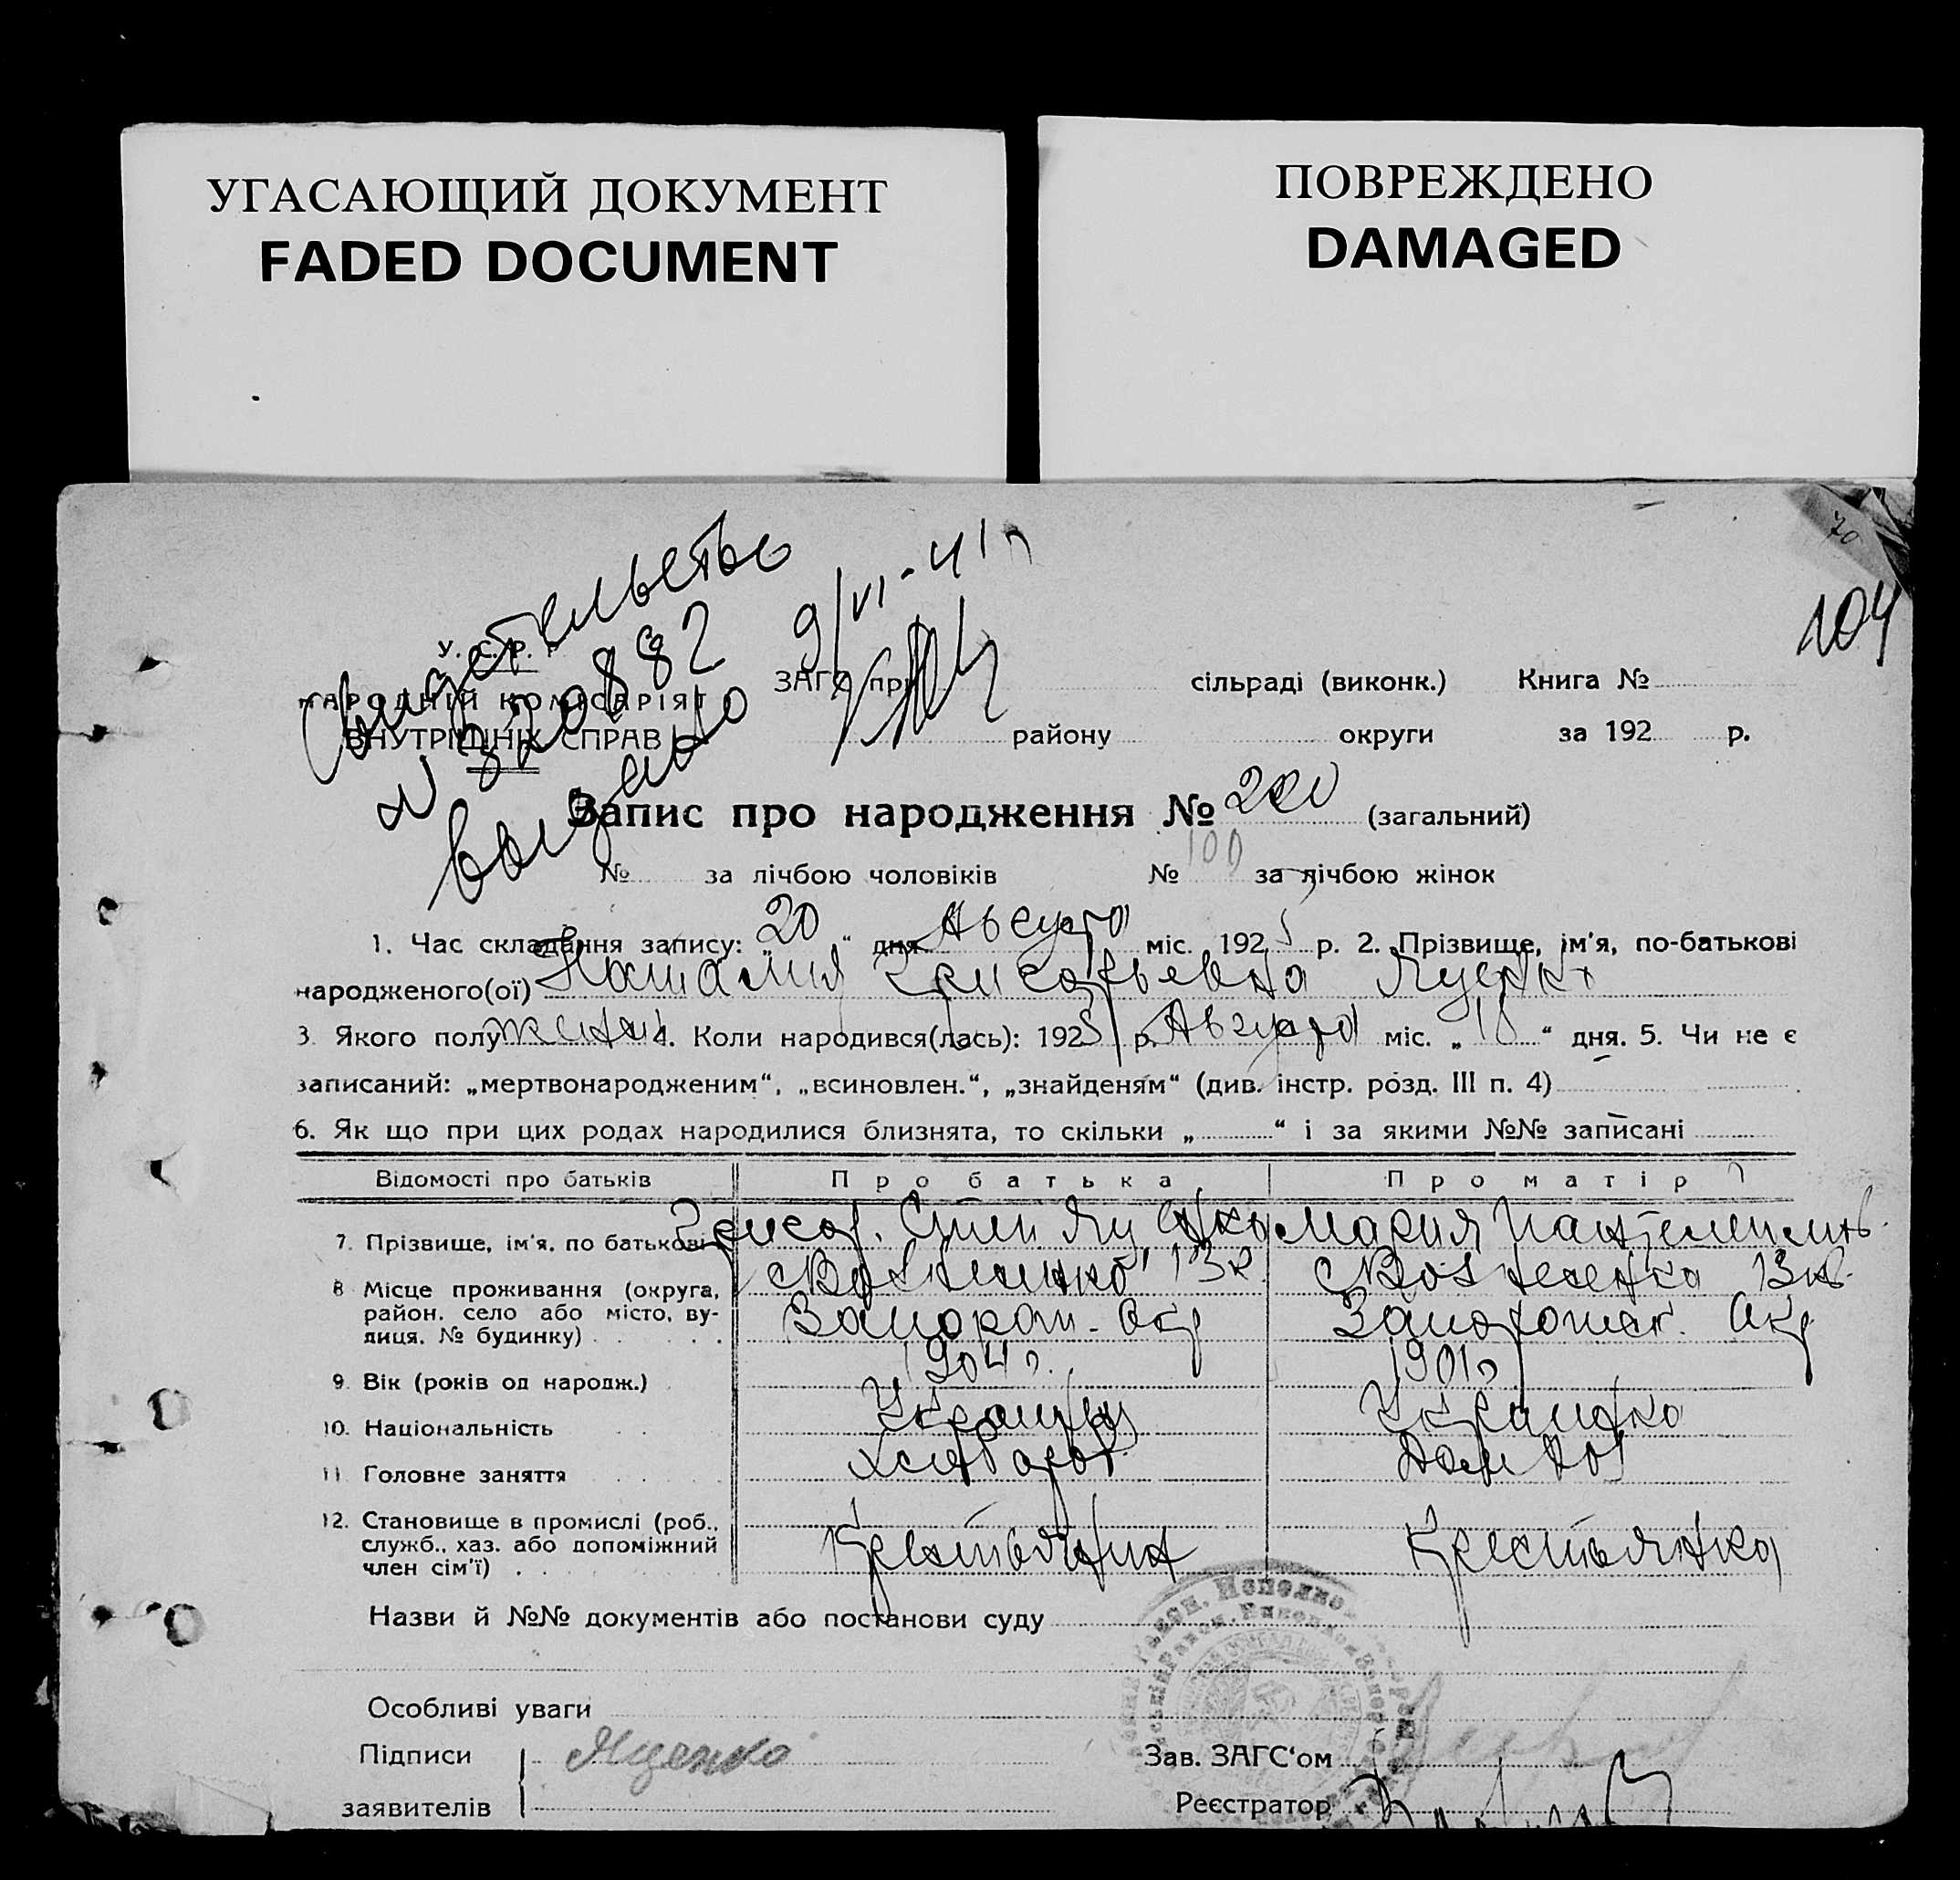 УГАСАЮЩИЙ ДОКУМЕНТ
FADED DOCUMENT
ПОВРЕЖДЕНО
DAMAGED
70
104
Свидетельство
N 820882
выдано
9/VI-41 г
У. С. Р. Р.
НАРОДНІЙ КОМІСАРІЯТ
ВНУТРІШНІХ СПРАВ
ЗАГС при сільраді (виконк.) Книга №
району округи за 192 р.
Запис про народження № 200 (загальний)
№ за лічбою чоловіків № 100 за лічбою жінок
1. Час складання запису: „20“ дня Августа міс. 1925 р. 2. Прізвище, ім'я, по-батькові
народженого(ої) Наталия Хрисафьевна Яценко
3. Якого полу женск 4. Коли народився(лась): 1925 р. Августа міс. „18“ дня. 5. Чи не є
записаний: „мертвонародженим“, „всиновлен.“, „знайденям“ (див. інстр. розд. III п. 4)
6. Як що при цих родах народилися близнята, то скільки „ “ і за якими №№ записані
Відомості про батьків Про батька Про матір
7. Прізвище, ім'я, по батькові Хрисаф. Яценко Мария
8 Місце проживання (округа, Вознесенка 13 к. Вознесенка 13 кв.
район, село або місто, ву-
лиця, № будинку) Запорож. Окр Запорожск. Окр
9. Вік (років од народж.) 1904 г. 1901 г
10. Національність Украинец Украинка
11. Головне заняття Хлебороб Дом хоз
12. Становище в промислі (роб.,
служб., хаз. або допоміжний Крестьянин Крестьянка
член сім'ї)
Назви й №№ документів або постанови суду
Особливі уваги
Підписи Яценко Зав. ЗАГС'ом
заявителів Реєстратор